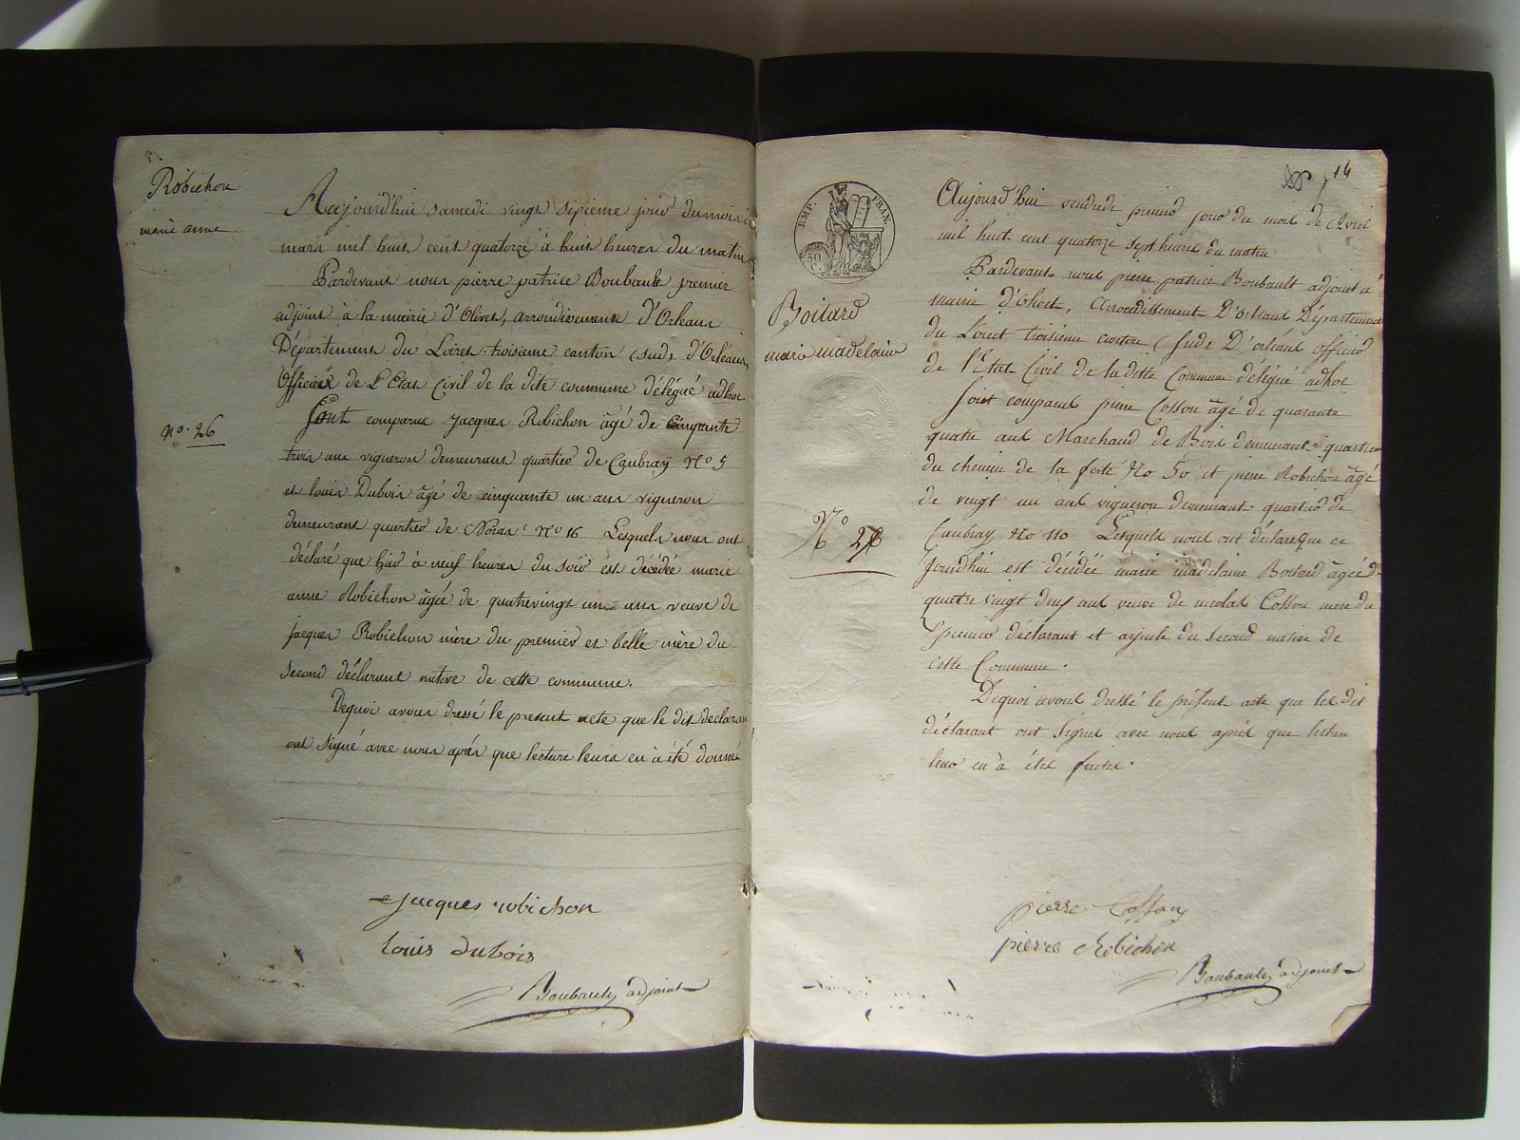 Robichon
marie anne
Aujourd'hui samedi vingt sixieme jour du mois de
mars mil huit cent quatorze à huit heures du matin
Pardevant nous pierre patrice Boubault premier
adjoint à la mairie d'Olivet, arrondissement d'Orleans
Département du Loiret troisieme canton (sud) d'Orléans,
Officier de L'Etat Civil de la dite commune délégué adhoc
Sont comparus jacques Robichon âgé de cinquante
trois ans vigneron demeurant quartier de Caubray No 5
No. 26
et louis Dubois âgé de cinquante un ans vigneron
demeurant quartier de No 16 Lesquels nous ont
déclaré que hier à neuf heures du soir est décédée marie
anne Robichon âgée de quatrevingt un ans veuve de
jacques Robichon mère du premier et belle mère du
second déclarant native de cette commune.
Dequoi avons dressé le present acte que le dit declarant
ont signé avec nous après que lecture leurs en à été donné
Jacques robichon
louis dubois
Boubault adjoint
14
EMP. FRAN.
50
Boitard
marie madelaine
No 27
Aujourd'hui vendredi premier jour du mois de Avril
mil huit cent quatorze sept heures du matin
Pardevant nous pierre patrice Boubault adjoint à
mairie d'Olivet, Arrondissement D'Orleans Département
du Loiret troisieme canton (sud) D'orléans officier
de l'Etat Civil de la ditte Commune délégué adhoc
sont comparus pierre Cosson âgé de quarante
quatre ans Marchand de Bois demeurant quartier
du chemin de la ferté No 50 et pierre Robichon âgé
de vingt un ans vigneron demeurant quartier de
Caubray No 110 Lesquels nous ont déclaré que ce
jourdhui est décédée marie madelaine Boitard âgée de
quatre vingt deux ans veuve de nicolas Cosson mere du
premier déclarant et ayeule du second native de
cette Commune.
Dequoi avons dressé le présent acte que les dit
déclarant ont signés avec nous après que lecture
leur en à été faitte.
pierre Cosson
pierre Robichon
Boubault adjoint